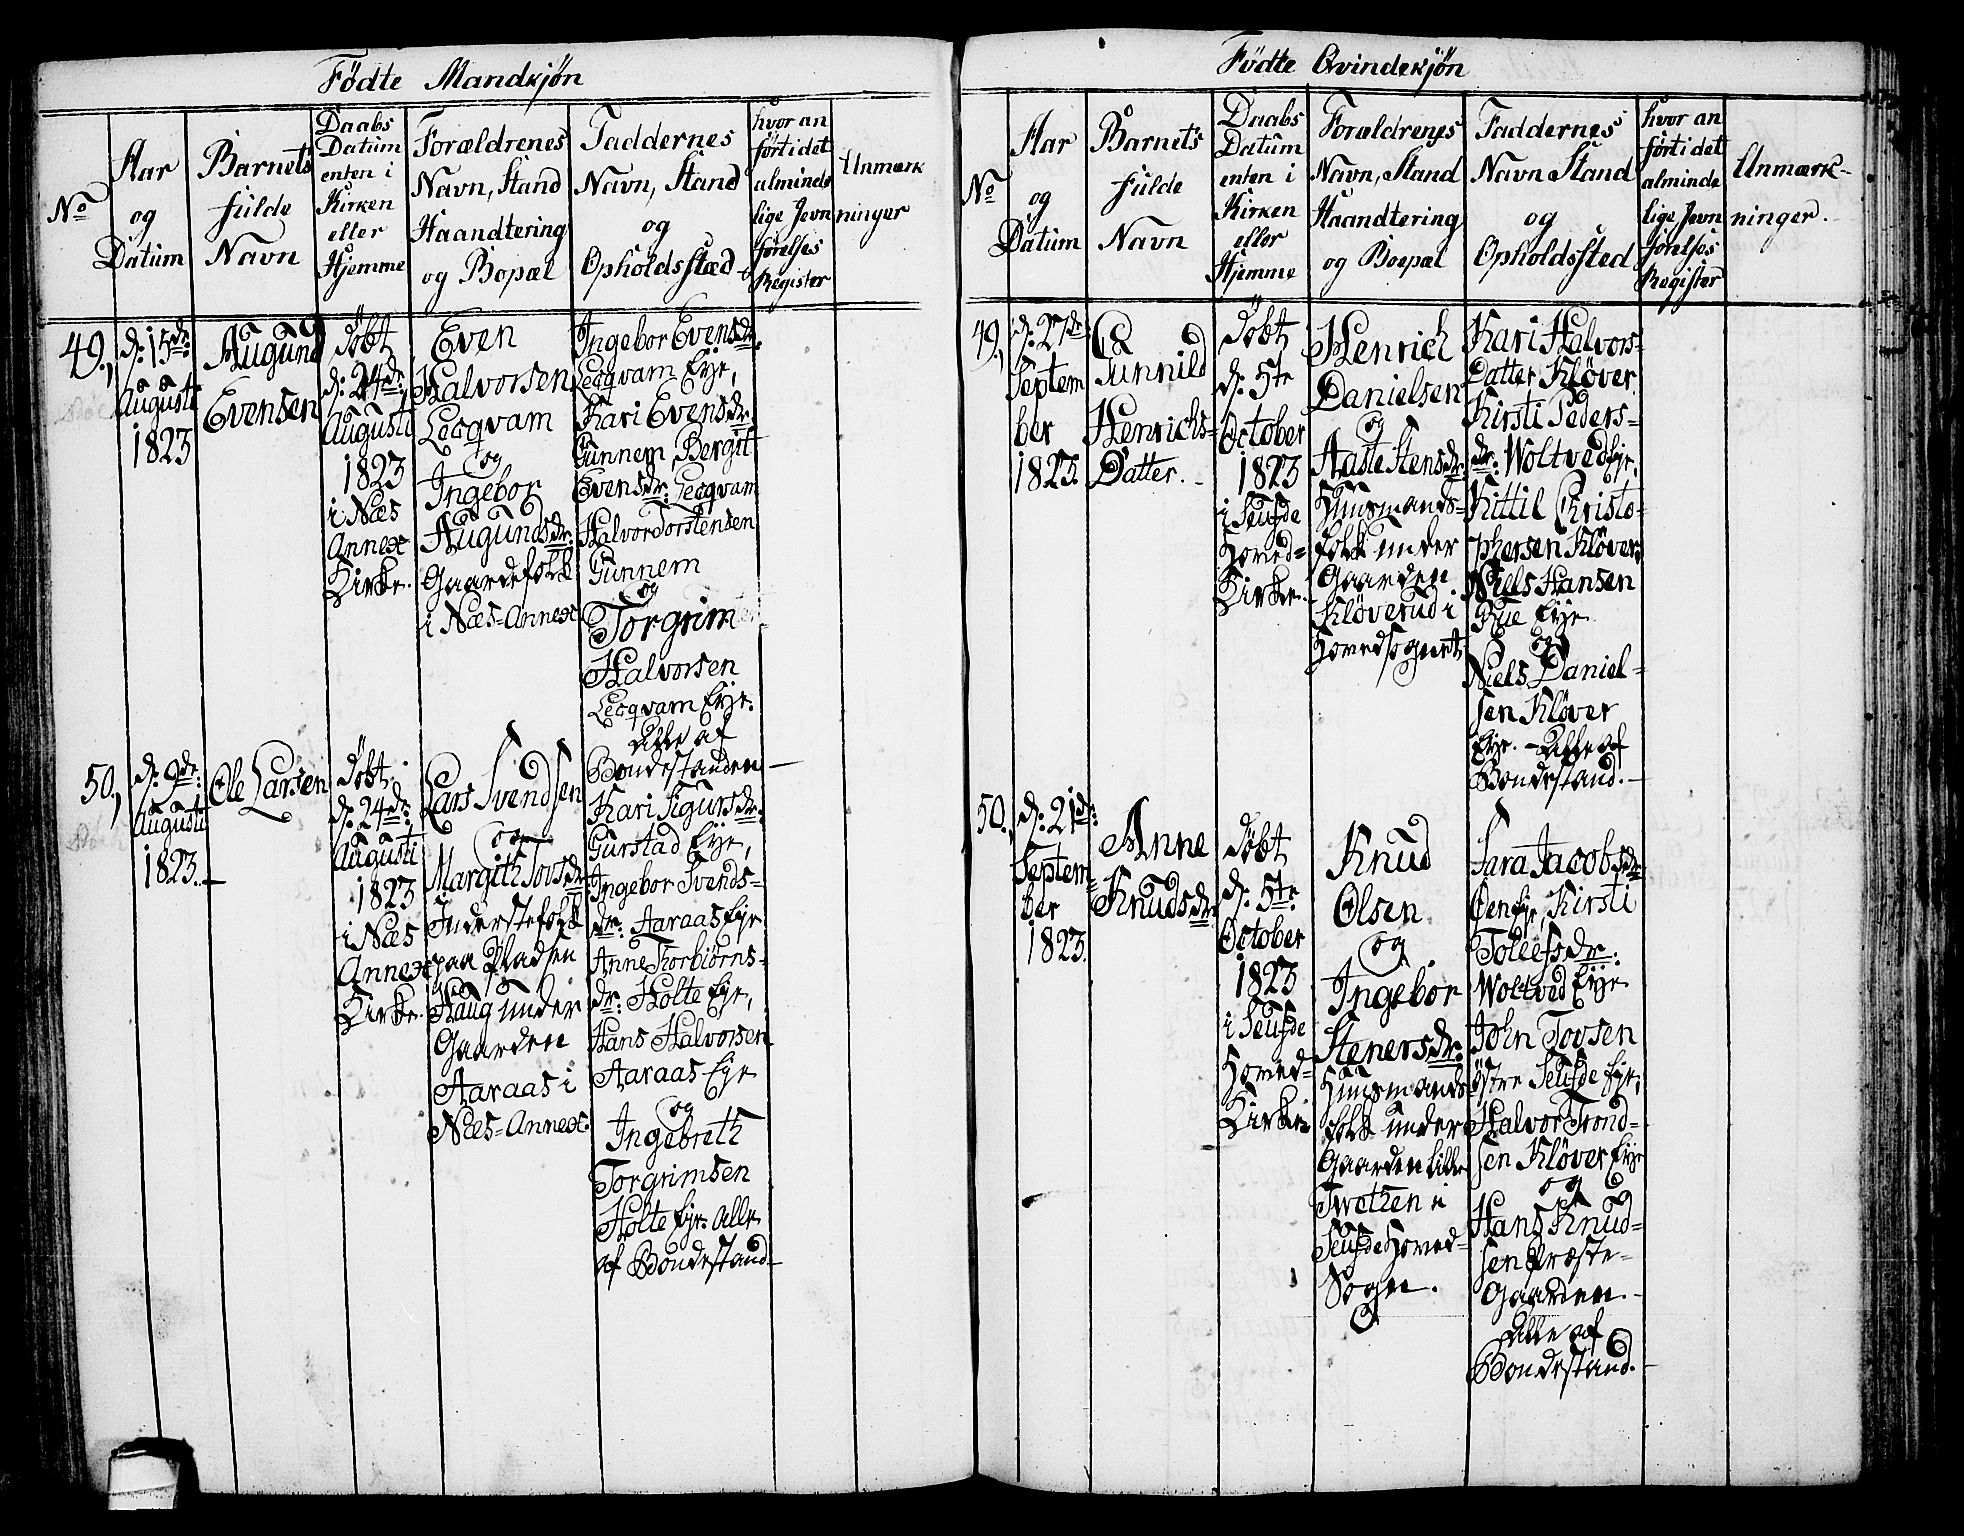 Födte Mandkjön
No
Aar
og
Datum
Barnets
fulde
Navn
Daabs
Datum
enten i
Kirken
eller
Hjemme
Forældrenes
Navn, Stand
Haandtering
og Bopæl
Faddernes
Navn, Stand
og
Opholdsstæd
hvor an
förti det
alminde
lige Jevn
förelses
Register
Anmærk
ninger
49.,
d: 15de:
Augusti
1823
Augund
Evensen
Döbt
d: 24de:
Augusti
1823
i Næs
Annex
Kirke.
Even
Halvorsen
Leoqvam
og
Ingebor
Augundsdr:
Gaardefolk
i Næs-Annex
Ingebor Evensdr.
Leoqvam Eye,
Kari Evensdr.
Gunnem, Bergit
Evensdr: Leoqvam
Halvor Torstensen
Gunnem
og
Torgrim
Halvorsen
Leoqvam Eye.
Alle af
Bondestanden
50.,
d: 9de:
Augusti
1823.
Ole Larsen
Döbt
d: 24de:
Augusti
1823
i Næs
Annex
Kirke.
Lars Svendsen
og
Margith Tovsdr
Inderstefolk
paa Pladsen
Haug under
Gaarden
Aaraas i
Næs-Annex.
Kari Sigursdr:
Gurstad Eye,
Ingebor Svends-
dr: Aaraas Eye
Anne Torbiörns-
dr: Holte Eye,
Hans Halvorsen
Aaraas Eye
og
Ingebreth
Torgrimsen
Holte Eye. Alle
af Bondestand
Födte Qvindekjön
No
Aar
og
Datum
Barnets
fulde
Navn
Daabs
Datum
enten i
Kirken
eller
Hjemme
Forældrenes
Navn, Stand
Haandtering
og Boepæl
Faddernes
Navn Stand
og
Opholdssted
hvor an
förti det
alminde
lige Jevn
förelses
Register
Anmærk-
ninger.
49.,
d: 27de:
Septem
ber
1823.
Gunnild
Henrichs-
Datter.
Döbt
d: 5te
October
1823
i Seufde
Hoved-
Kirke.
Henrich
Danielsen
og
Aaste Stensdr.
Huusmands-
folk under
Gaarden
Klöverud i
Hovedsognet
Kari Halvors-
Datter Klöver
Kirsti Peders-
dr: Woltved Eye,
Kittil Christo-
phersen Klöver,
Niels Hansen
Rue Eye
og
Niels Daniel-
sen Klöver
Eye. - Alle af
Bondestand.
50.,
d: 21de:
Septem-
ber
1823.
Anne
Knudsdr.
Döbt
d: 5te:
October
1823
i Seufde
Hoved-
Kirke
Knud
Olsen
og
Ingebor
Stenersdr:
Huusmands
folk under
Gaarden Lille
Twethen i
Seufde Hoved-
Sogn.
Sara Jacobsdr:
Öen Eye, Kirsti
Tollefsdr:
Woltved Eye
John Tovsen
östre Seufde Eye,
Halvor Trond-
sen Klöver Eye
og
Hans Knud-
sen Præste-
Gaarden.
Alle af
Bondestand.